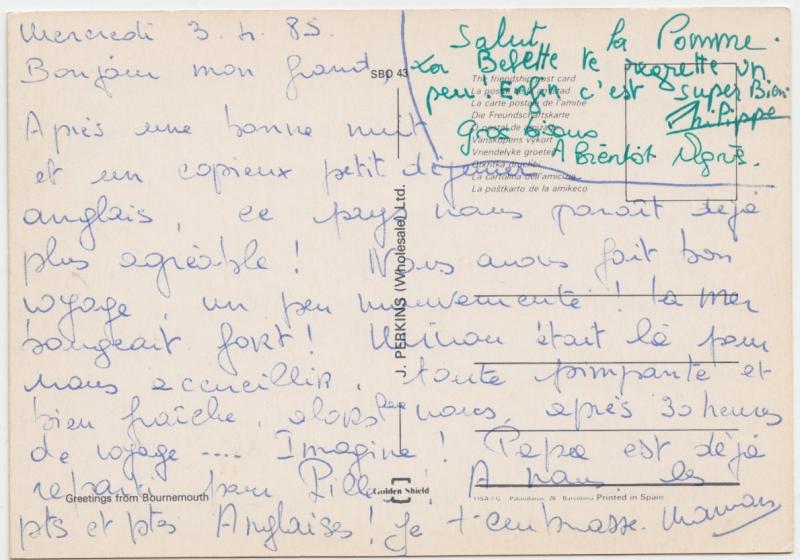 Mercredi 3.4.85.
Bonjour mon grand,
Après une bonne nuit
et un copieux petit déjeuner
anglais, ce pays nous paraît déjà
plus agréable! Nous avons fait bon
voyage, un peu mouvementé! la mer
bougeait fort! était là pour
nous accueillir. toute pimpante et
bien fraîche, alors que nous, après 30 heures
de voyage .... Imagine! Papa est déjà
reparti pour ! A nous, les
pts et ptes Anglaises! Je t'embrasse. Maman
Salut la Pomme.
La Belette te regrette un
peu! Enfin c'est super Bien
Philippe
Gros bisous
A Bientôt Agnès.
SBO 43
The friendship post card
La postal de la amistad
La carte postale de l'amitié
Die Freundschaftskarte
Vänskapens vykort
Vriendelyke groeten
La cartolina dell'amicizia
La poŝtkarto de la amikeco
J. PERKINS (Wholesale) Ltd.
Greetings from Bournemouth
Golden Shield
FISA I.G. Palaudarias, 26 - Barcelona Printed in Spain